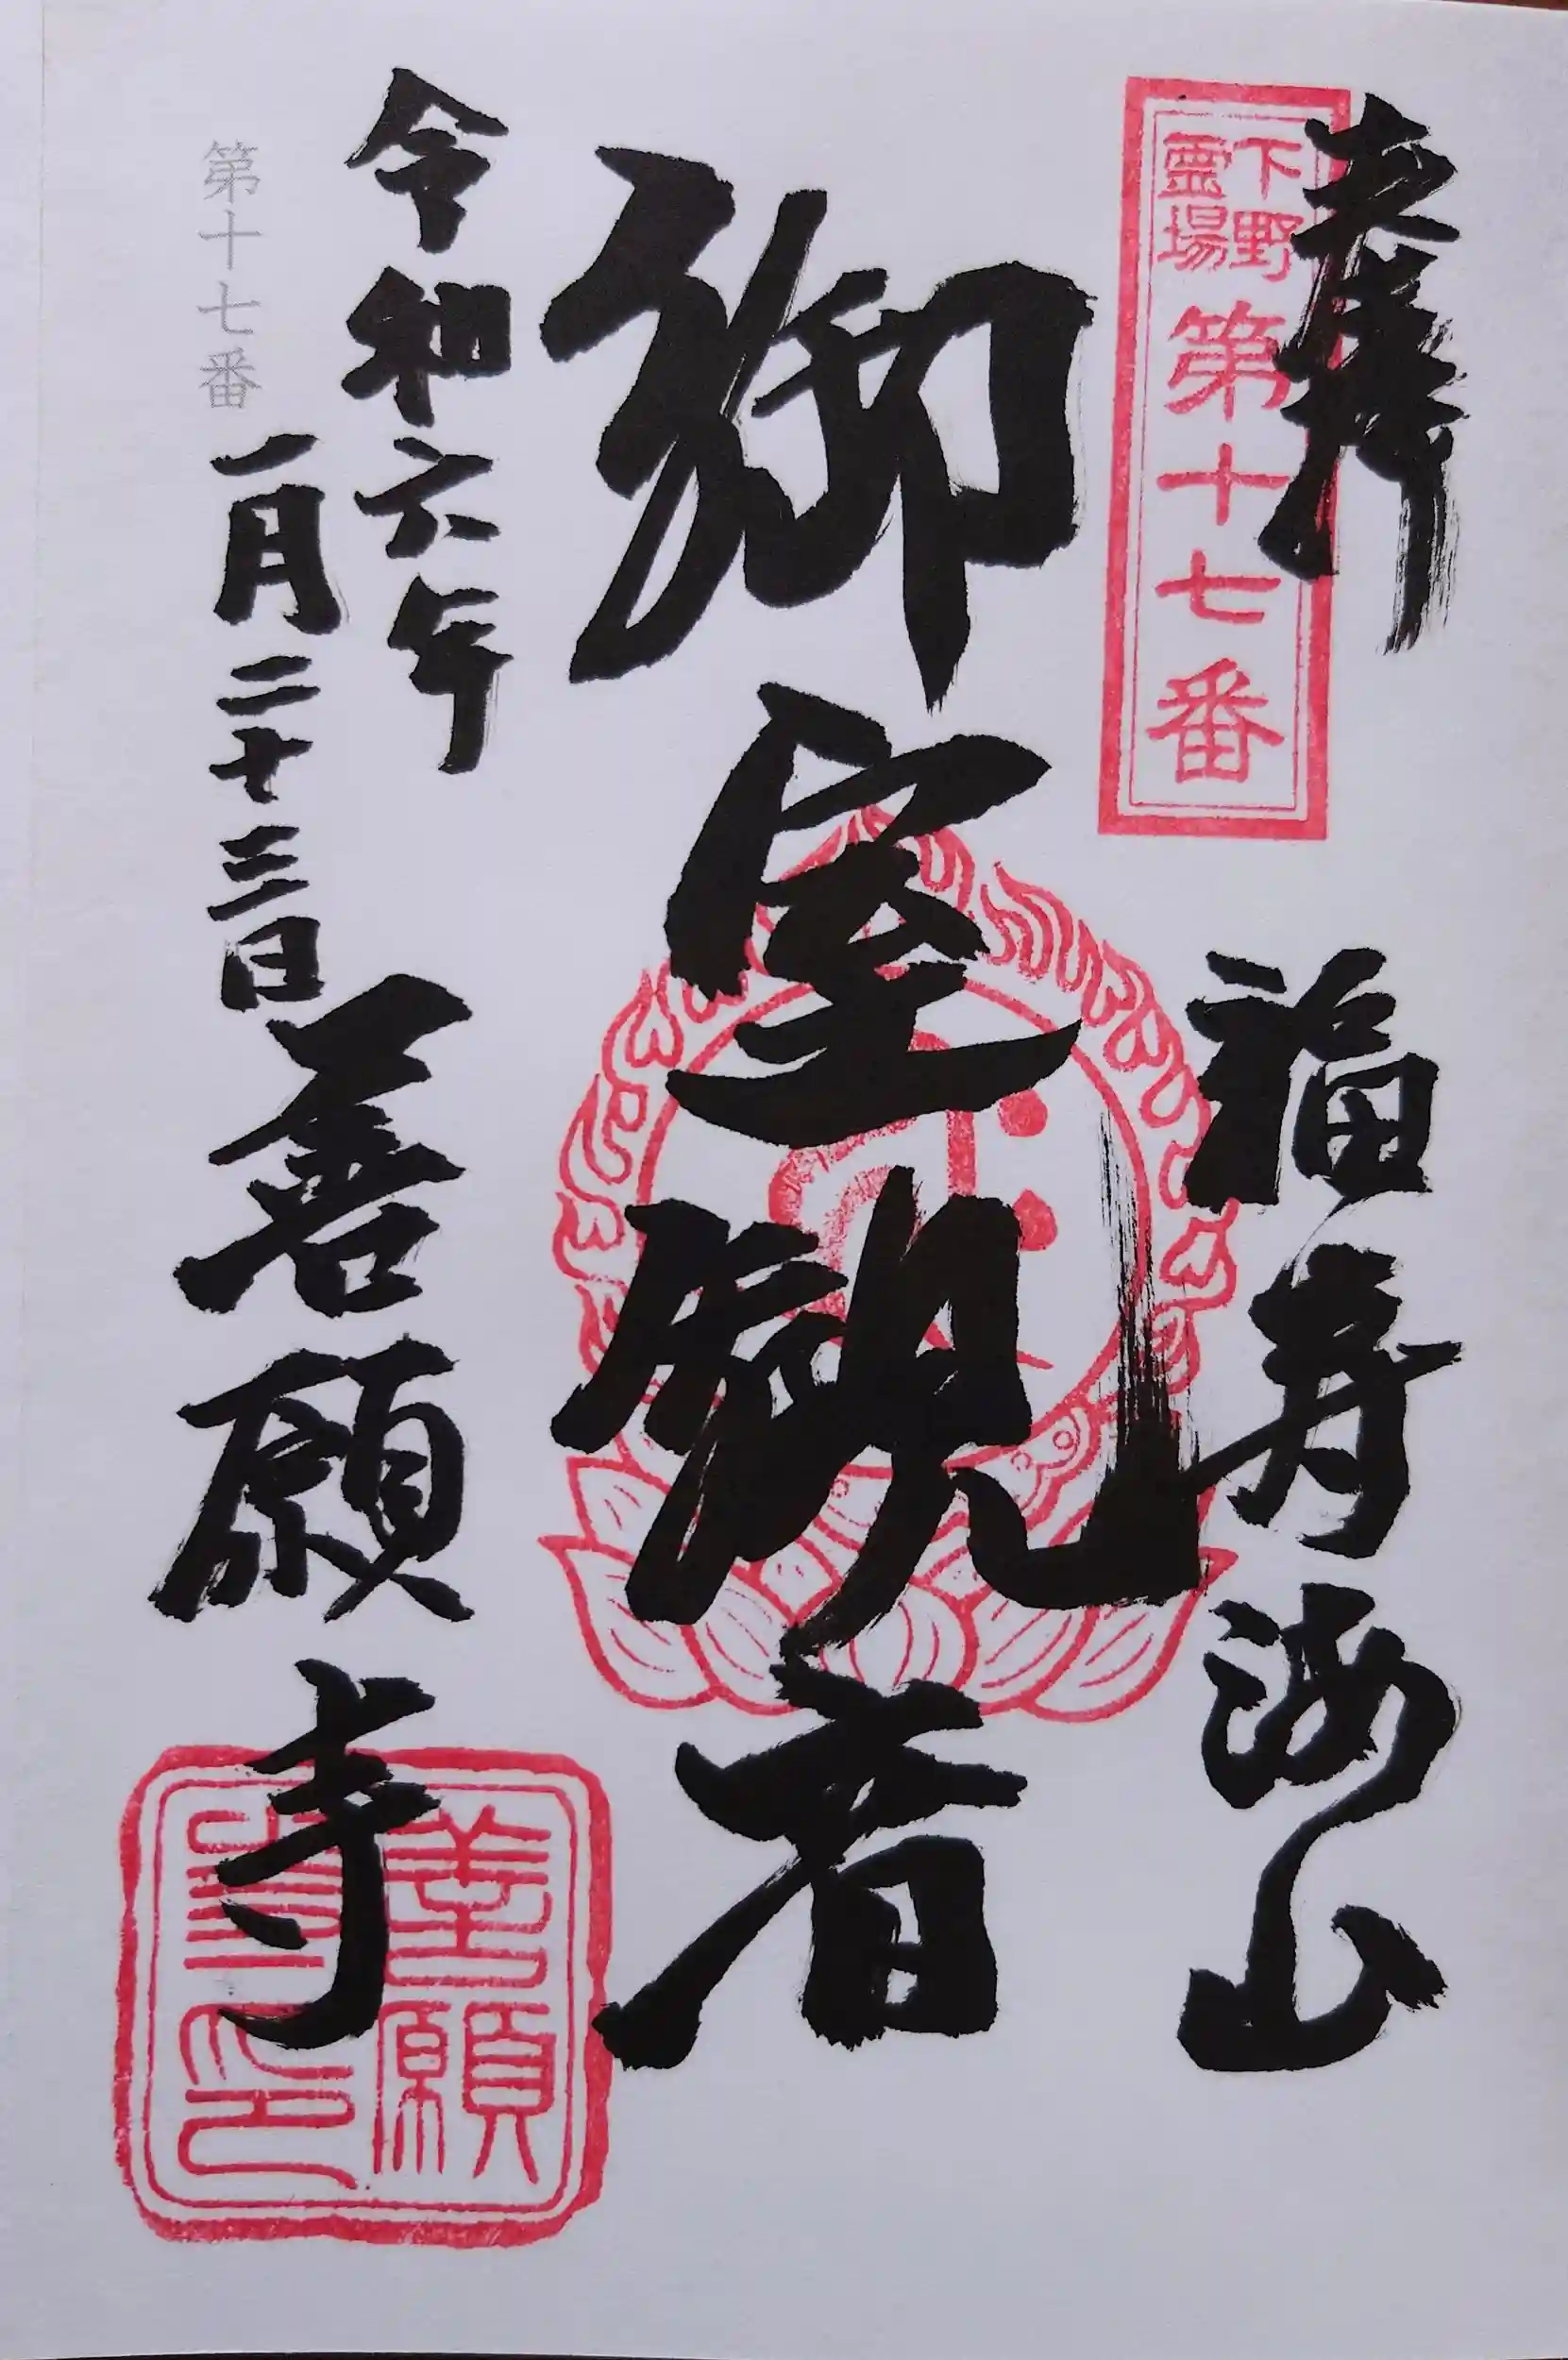 奉拝
福寿海山
下野
霊場
第十七番
御室観音
令和六年
第十七番
一月二十三日
善願寺
善願
寺印